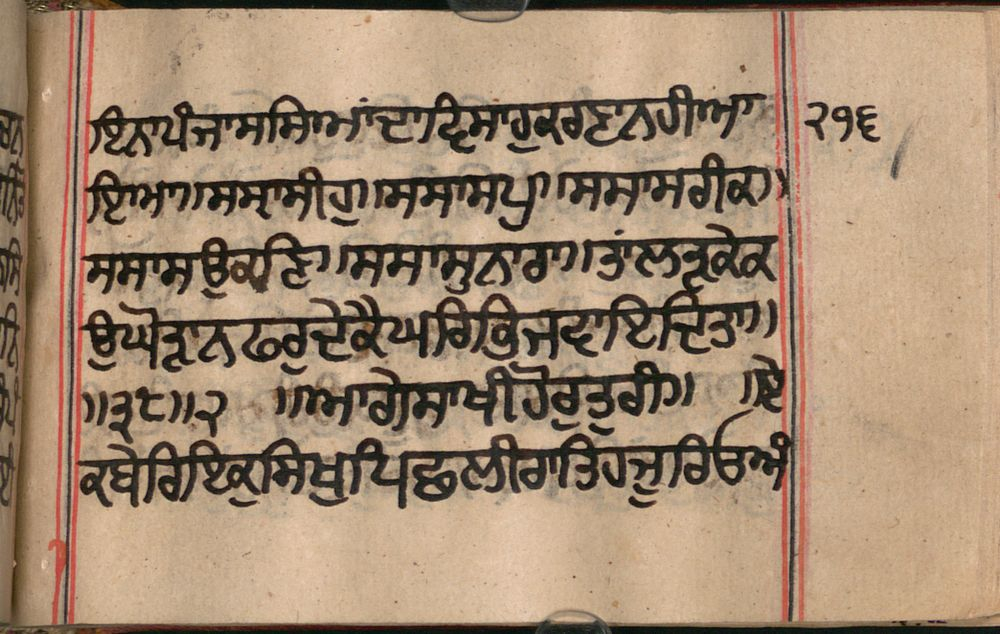 ਇਨਾਪੰਜਾਸਸਿਆਂਦਾਵਿਸਾਹੁਕਰਣਾਨਹੀਆ ੨੧੬
ਇਆ॥ਸਸਾਸੀਹੁ॥ਸਸਾਸਪੁ॥ਸਸਾਸਰੀਕ॥
ਸਸਾਸਉਕਣਿ॥ਸਸਾਸੁਨਾਰਾ॥ਤਾਂਲੜਕੇਕ
ਉਘੋੜਾਨਫਰੁਦੇਕੈਘਰਿਭਿਜਵਾਇਦਿਤਾ॥
॥੩੮॥੨ ॥ਆਗੇਸਾਖੀਹੋਰੁਤੁਰੀ॥ ॥ਏ
ਕਬੇਰਿਇਕੁਸਿਖੁਪਿਛਲੀਰਾਤਿਹਜੂਰਿਓਅੰ